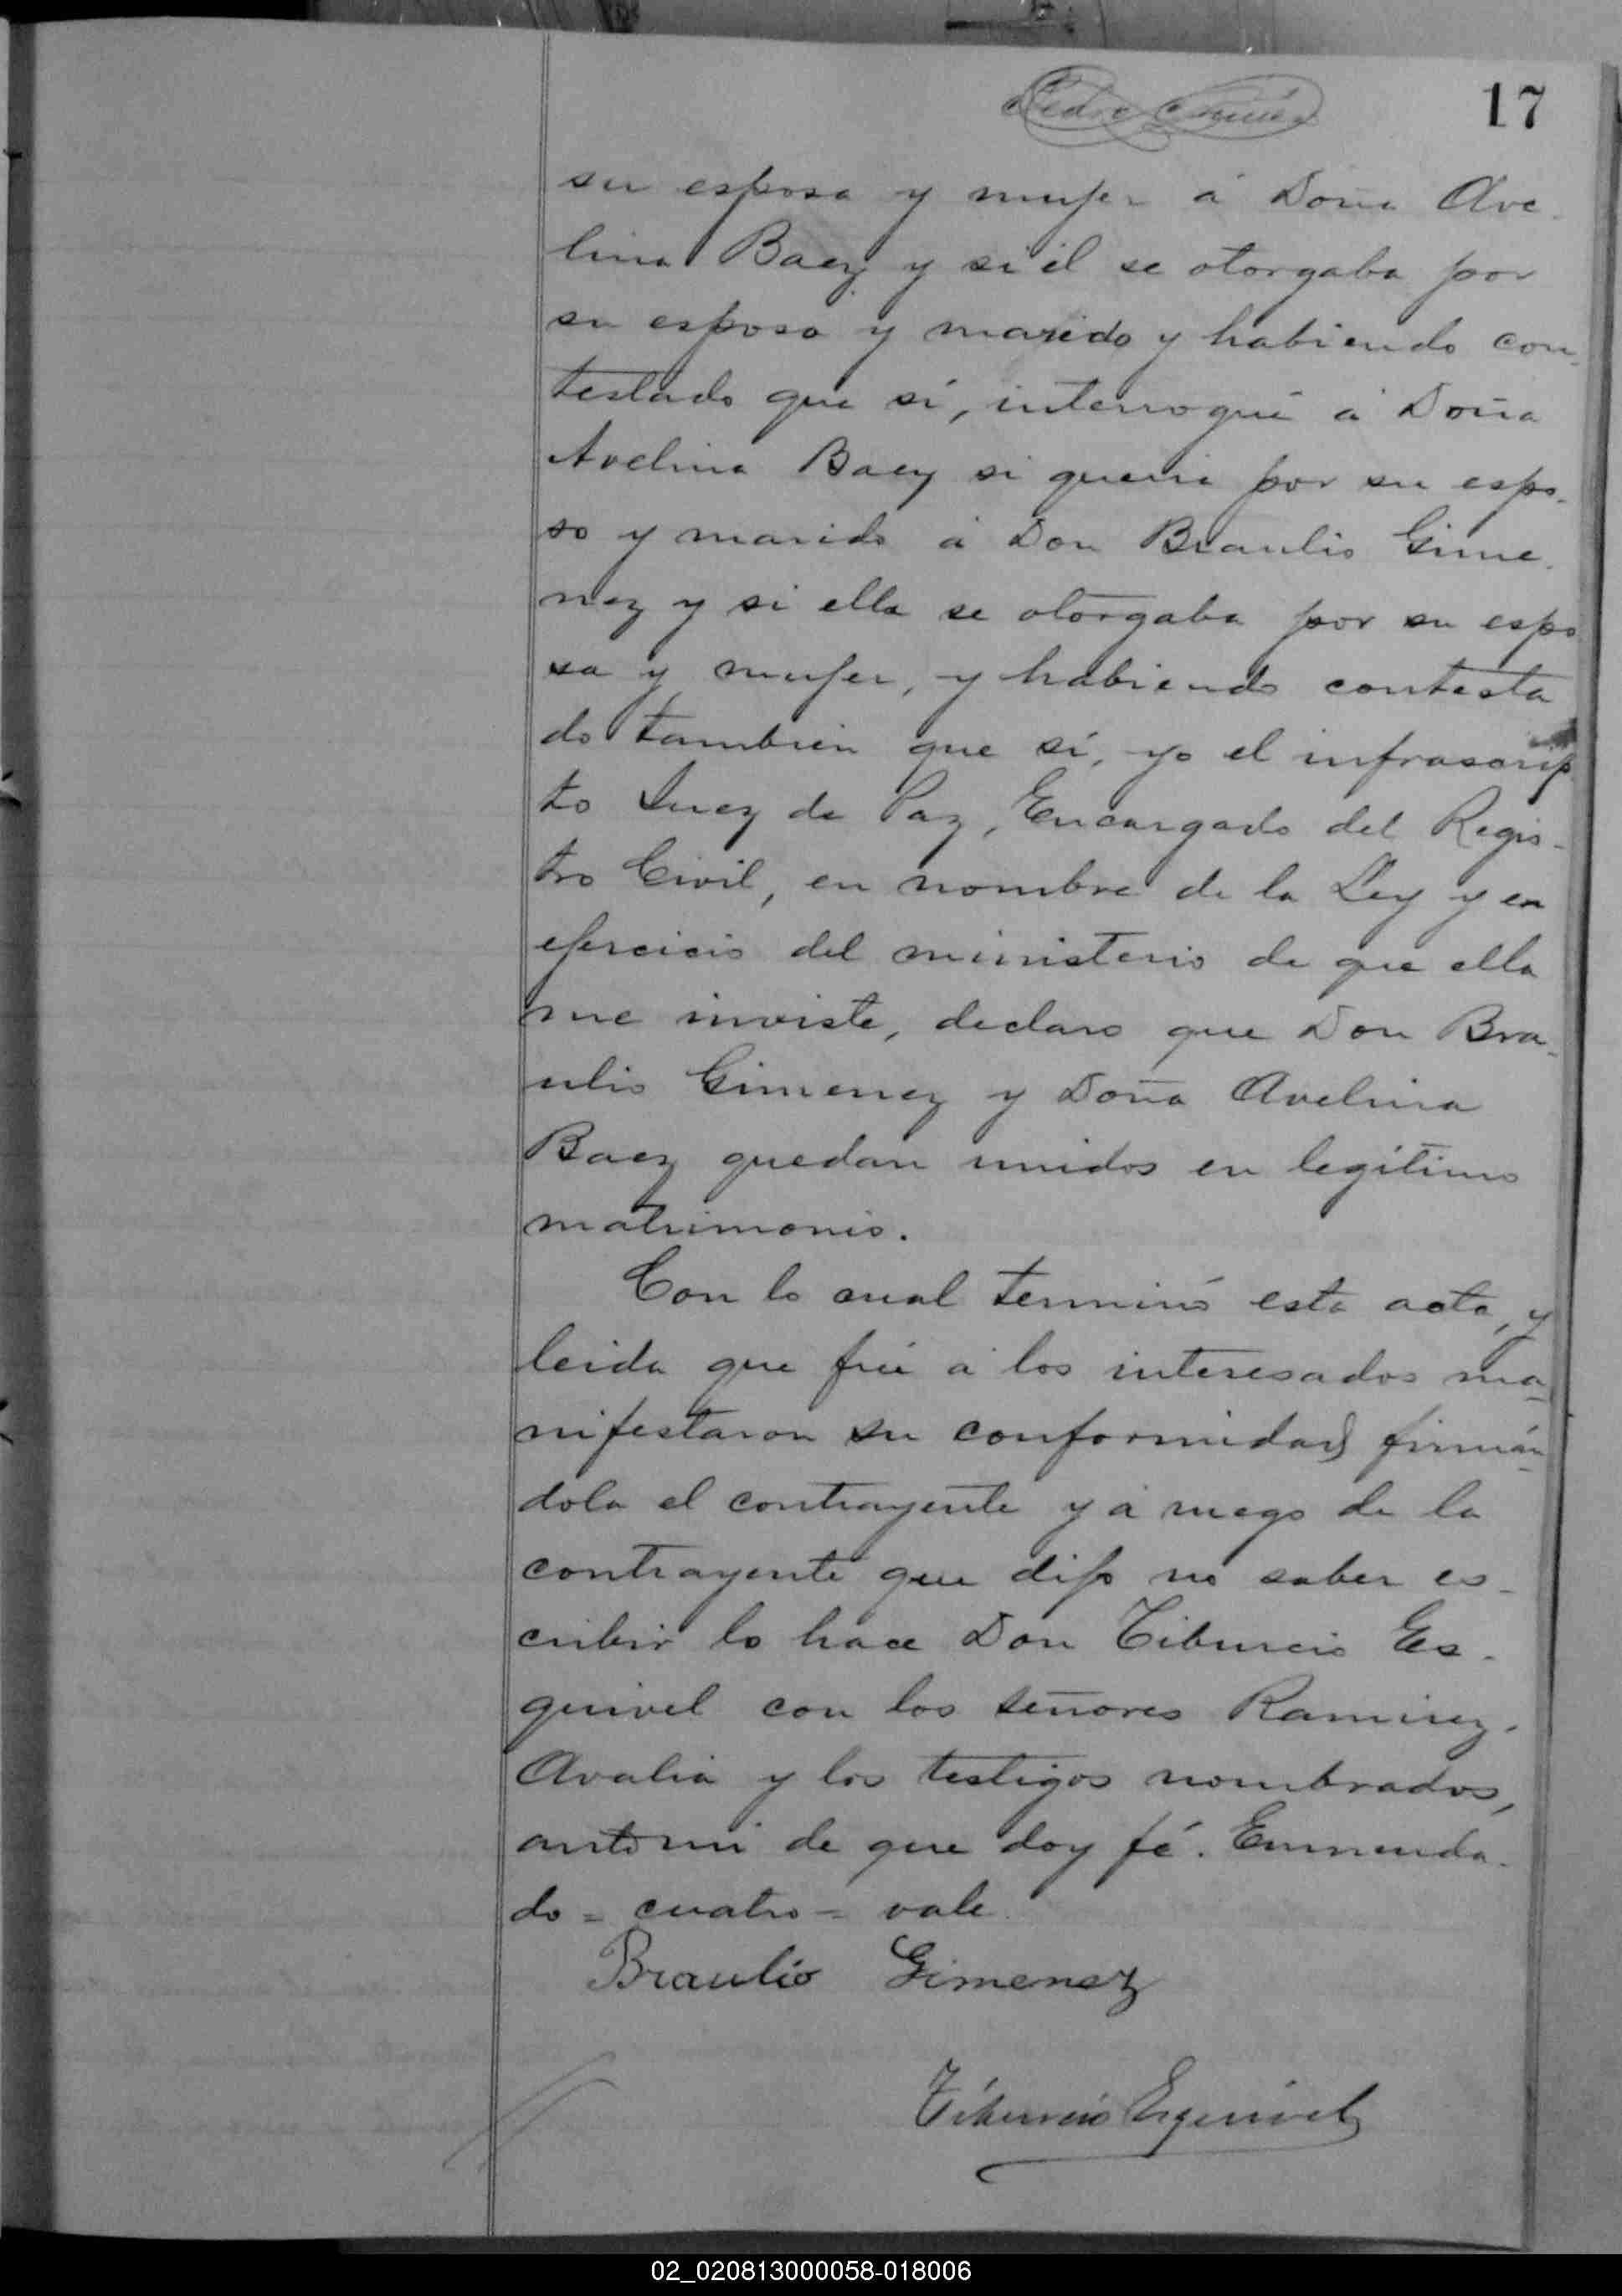 17
su esposa y mujer á Doña Ave-
lina Baez y si él se otorgaba por
su esposo y marido y habiendo con-
testado que sí, interrogué á Doña
Avelina Baez si queria por su espo-
so y marido á Don Braulio Gime-
nez y si ella se otorgaba por su espo
sa y mujer, y habiendo contesta
do también que sí, yo el infrascrip
to Juez de Paz, Encargado del Regis-
tro Civil, en nombre de la Ley y en
ejercicio del ministerio de que ella
me inviste, declaro que Don Bra-
ulio Gimenez y Doña Avelina
Baez quedan unidos en legítimo
matrimonio.
Con lo cual terminó esta acta, y
leida que fué á los interesados ma-
nifestaron su conformidad firmán-
dola el contrayente y á ruego de la
contrayente que dijo no saber es-
cribir lo hace Don Tiburcio Es-
quivel con los señores Ramirez,
Avalia y los testigos nombrados,
ante mi de que doy fé. Enmenda-
do = cuatro = vale.
Braulio Gimenez
Tiburcio Esquivel
02_020813000058-018006